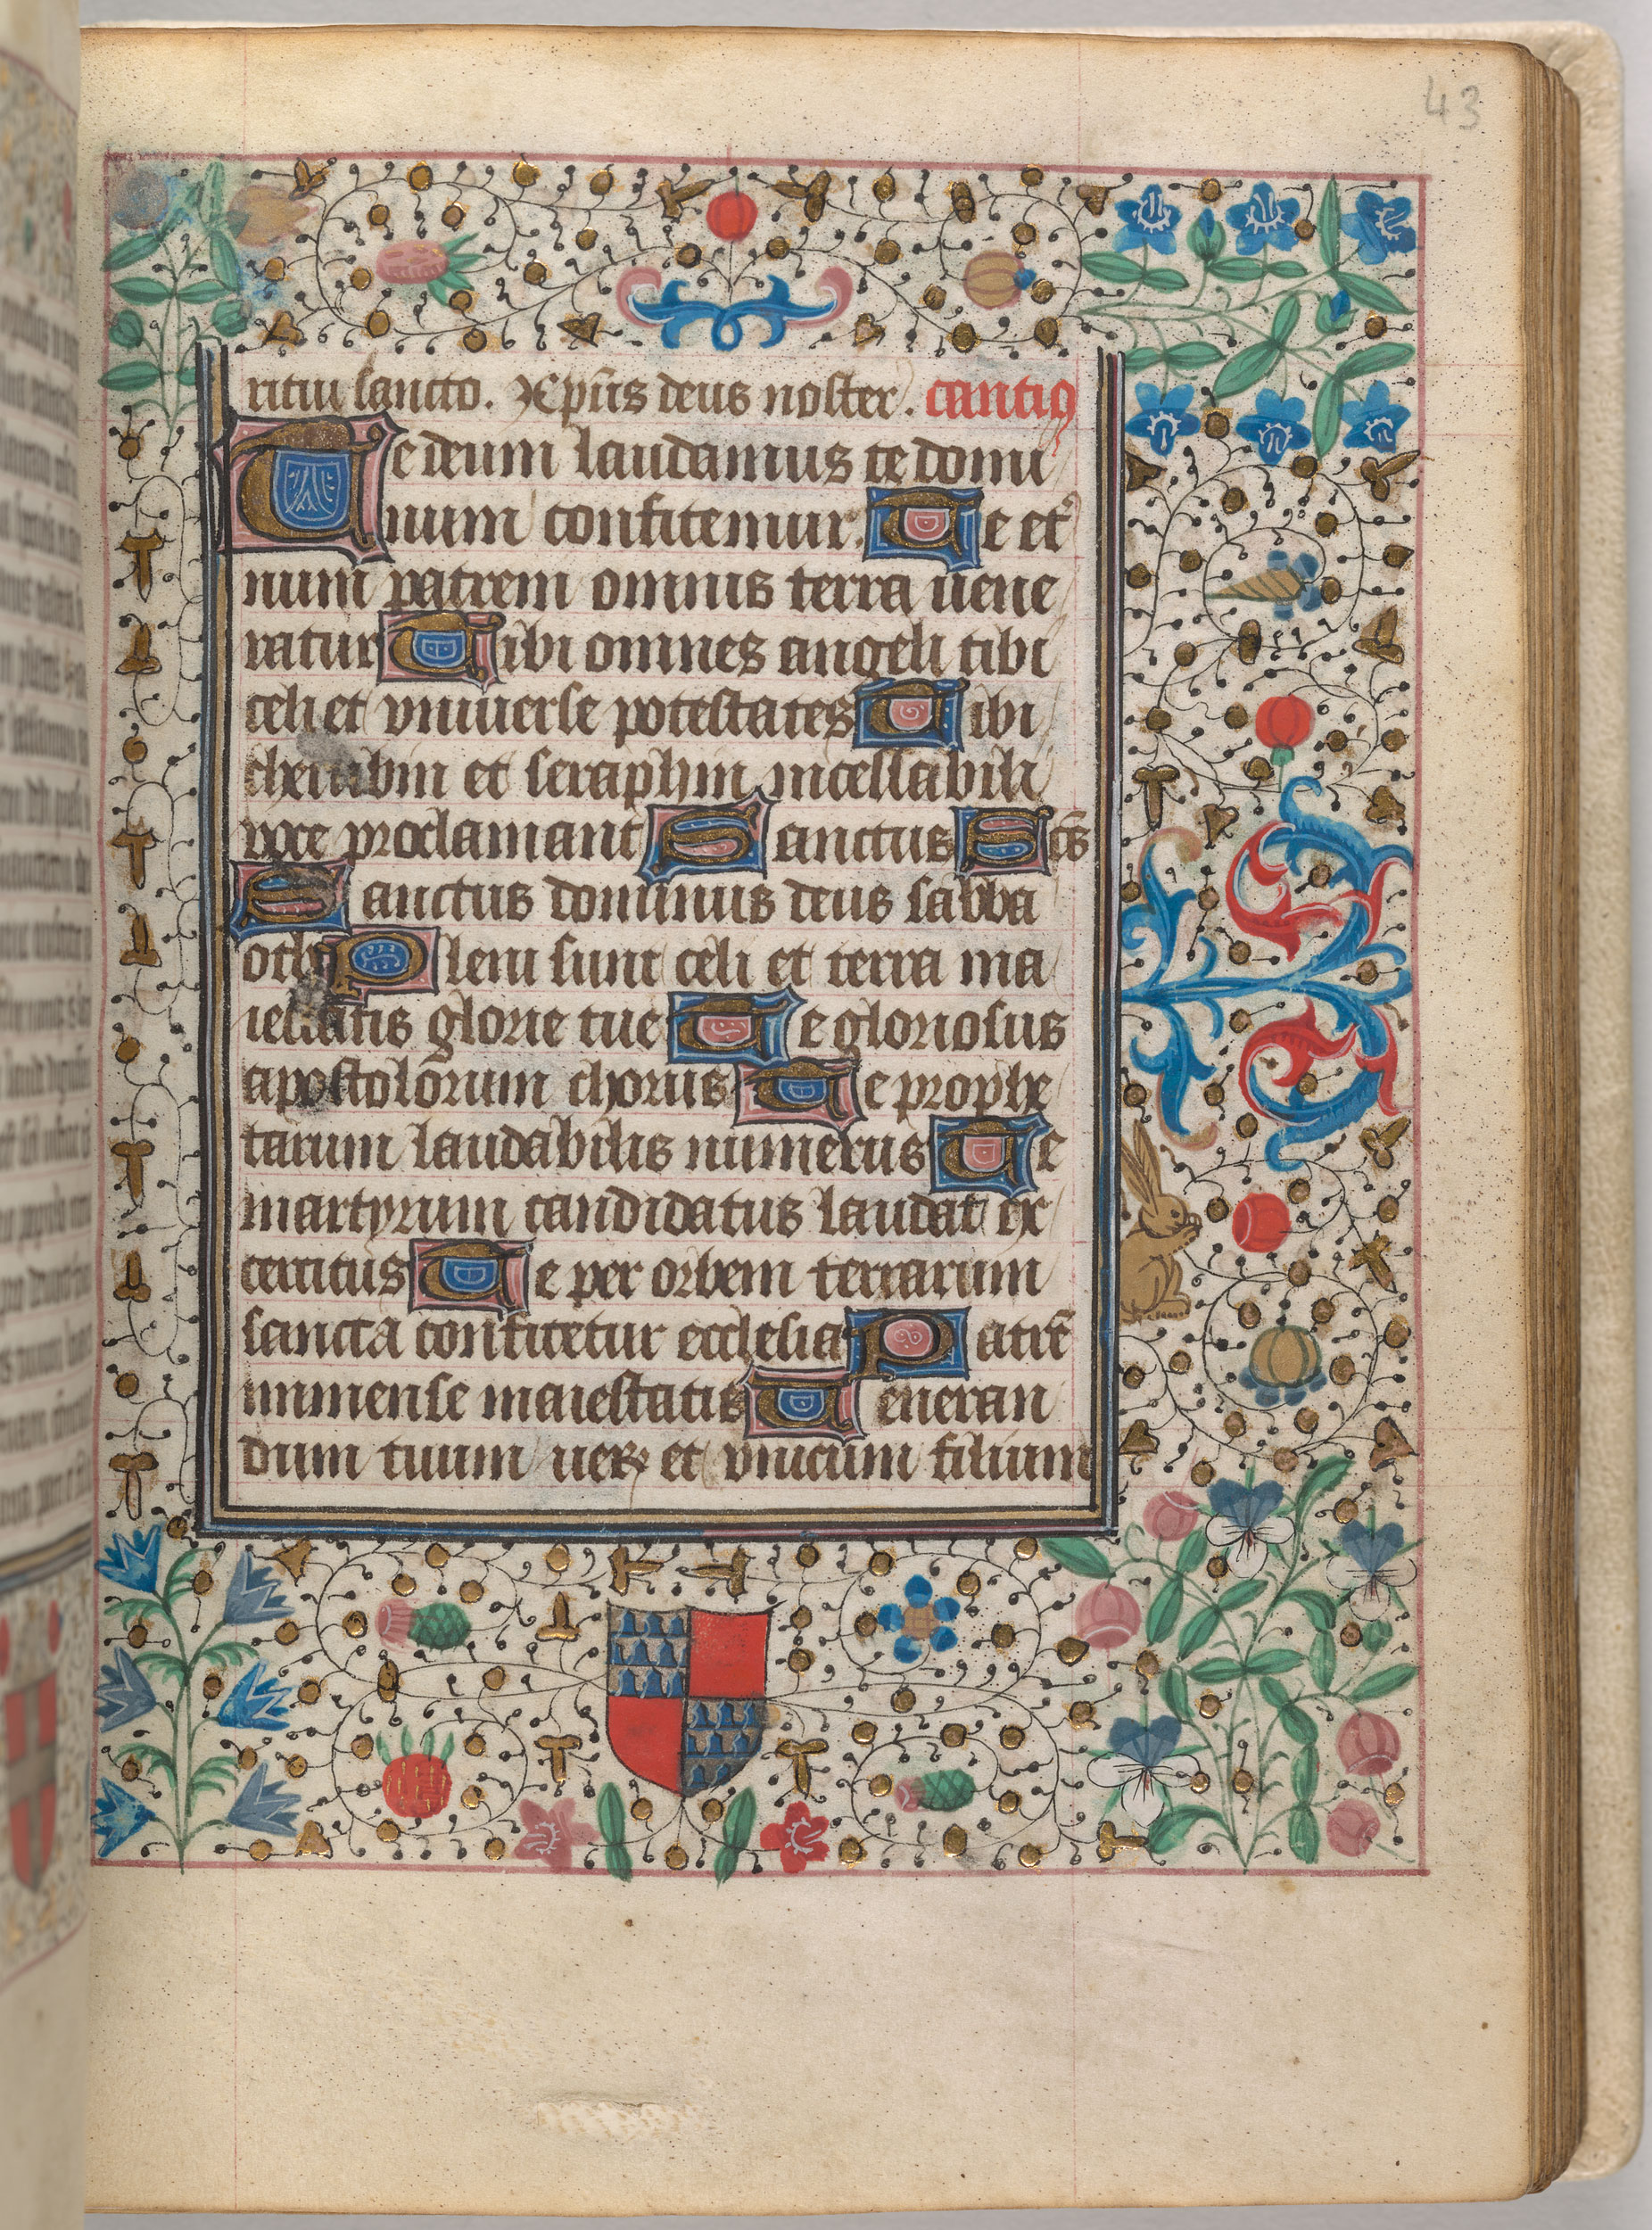 43
ritui sancto. Xp̄us deus noster. cantiq
Te deum laudamus te domi
num confitemur. Te et̾
num patrem omnis terra uene
ratur Tibi omnes angeli tibi
celi et vniuerse potestates Tibi
cherubin et seraphin incessabili
voce proclamant Sanctus Sc̄s
Sanctus dominus deus sabba
oth Pleni sunt celi et terra ma
iestatis glorie tue Te gloriosus
apostolorum chorus Te prophe
tarum laudabilis numerus Te
martyrum candidatus laudat ex
ercitus Te per orbem terrarum
sancta confitetur ecclesia Patrē
immense maiestatis Ueneran
dum tuum ueꝝ et vnicum filium